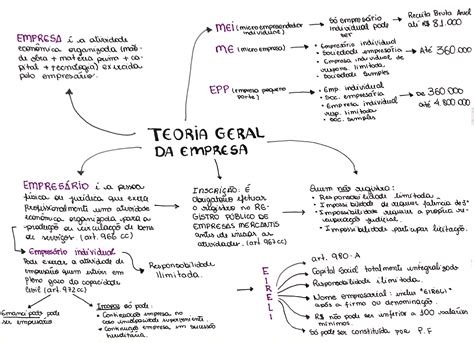 EMPRESA é a atividade
econômica organizada (mão
de obra + matéria prima + ca-
pital + tecnologia) exercida
pelo empresário.
MEI (microempreendedor
individual)
Só empresário
individual pode
Receita Bruta Anual
até R$ 81.000
ME (microempresa)
• Empresário individual
• Sociedade empresária
• Empresa individual de
respons. limitada
• Sociedade simples
Até 360 000
EPP (empresa pequeno
porte)
• Emp. individual
• Soc. empresária
• Empresa individual
resp. limitada
• Soc. simples
De 360 000
até 4.800 000
TEORIA GERAL
DA EMPRESA
EMPRESÁRIO é a pessoa
física ou jurídica que exerce
profissionalmente uma atividade
econômica organizada para a
produção ou circulação de bens
ou serviços (art. 966 cc)
INSCRIÇÃO: É
obrigatório efetuar
o registro no RE-
GISTRO PÚBLICO DE
EMPRESAS MERCANTIS
antes de iniciar as
atividades. (art. 967 cc)
Quem não registra:
• Responsabilidade ilimitada.
• Impossibilidade de requerer falência de 3º
• Impossibilidade requerer a própria re-
cuperação judicial.
• Impossibilidade participar licitação.
Empresário individual
Pode exercer a atividade de
empresário quem estiver em
pleno gozo da capacidade
civil (art. 972 cc)
Responsabilidade
Ilimitada.
Emancipado pode
ser empresário
Incapaz só pode:
• Continuação empresa no
caso incapacidade superveniente.
• Continuação empresa em sucessão
hereditária.
EIRELI
art. 980-A
Capital Social totalmente integralizado
Responsabilidade ilimitada.
Nome empresarial: inclui "EIRELI"
após a firma ou denominação.
R$ não pode ser inferior a 100 salários
mínimos.
Só pode ser constituída por P.F